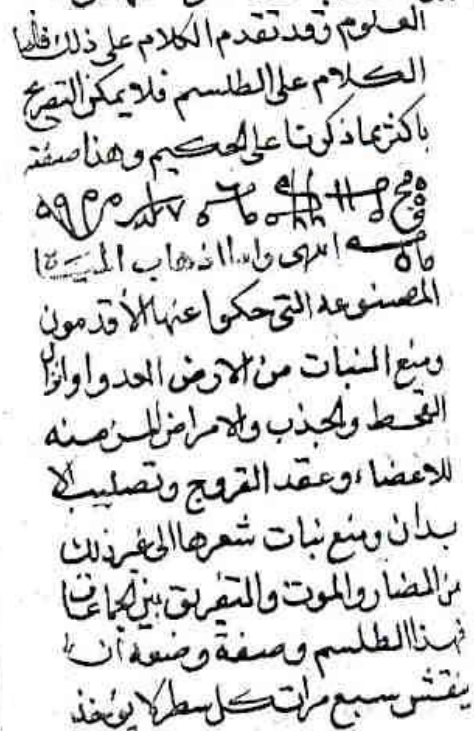 العلوم وقد تقدم الكلام على ذلك فاما
الكلام على الطلسم فلا يمكن التصريح
باكثر مما ذكرنا على الحكيم وهذا صفته
انتهى واما اذهاب
المصنوعه التي حكوا عنها الأقدمون
ومنع النبات من الارض العدو او انزال
القحط والجذب والامراض المزمنه
للاعضاء وعقد الفروج وتصليب الا
بدان ومنع نبات شعرها الى غير ذلك
من المضار والموت والتفريق بين الجماعات
فهذا الطلسم وصفة وضعه أن
ينقش سبع مرات كل سطر لا يؤخذ